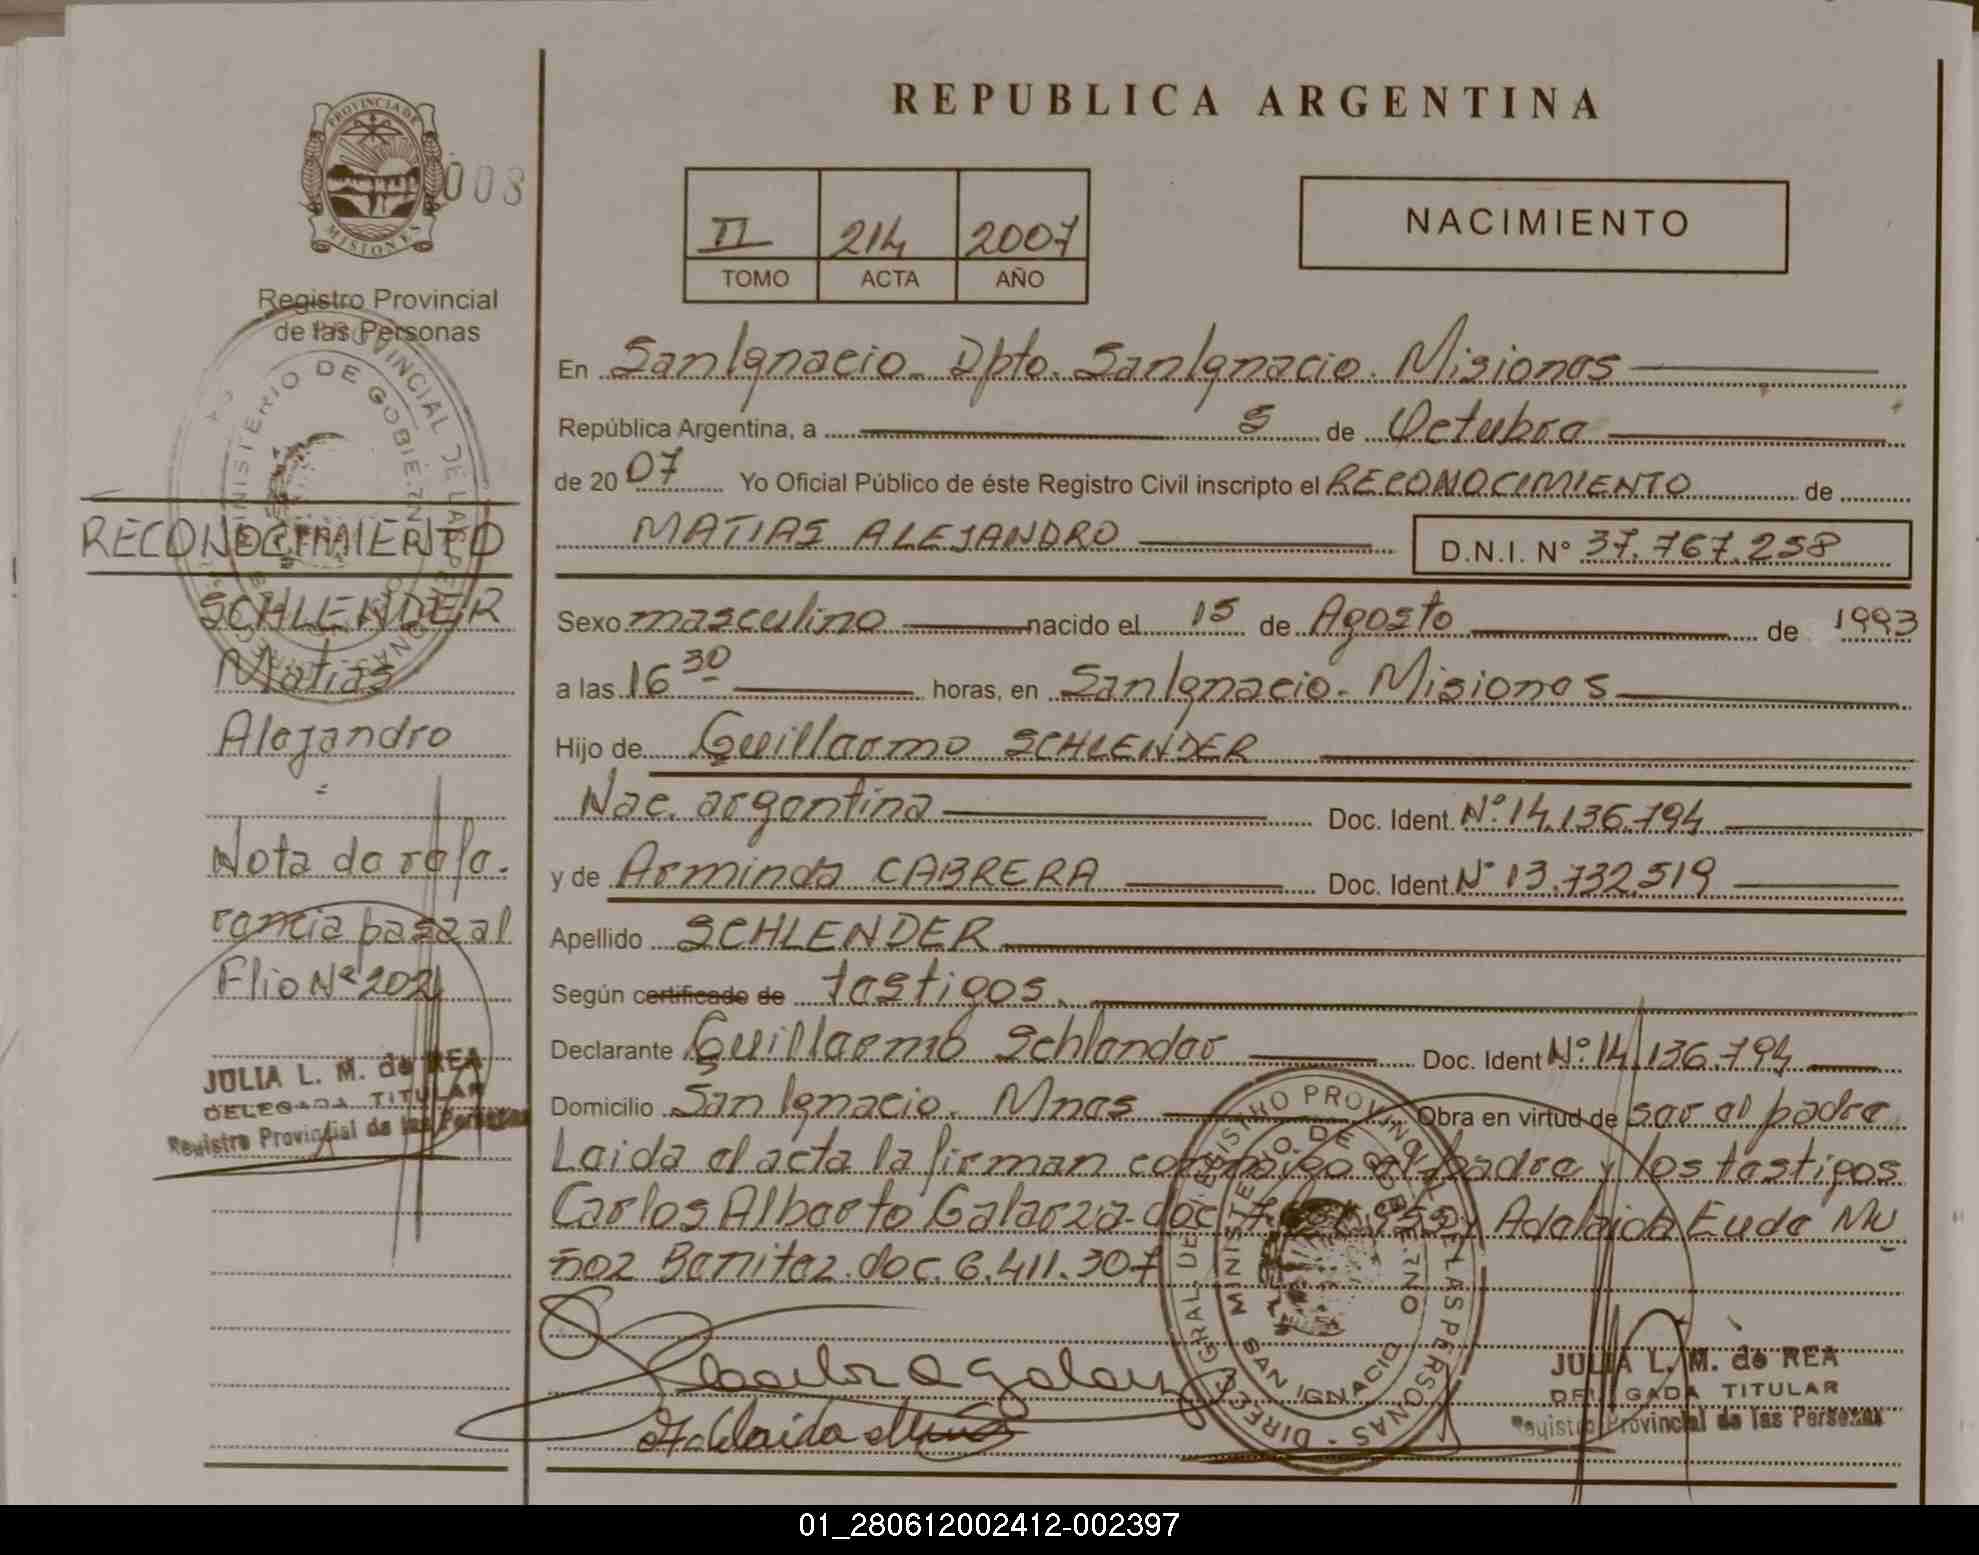 PROVINCIA DE
MISIONES
008
Registro Provincial
de las Personas
RECONOCIMIENTO
SCHLENDER
Matias
Alejandro
Nota de refe-
rencia pasa al
Flio Nº 202
JULIA L. M. de REA
DELEGADA TITULAR
Registro Provincial de las Personas
REPUBLICA ARGENTINA
II 214 2007
TOMO ACTA AÑO
NACIMIENTO
En San Ignacio. Dpto. San Ignacio. Misiones
República Argentina, a 5 de Octubre
de 2007 Yo Oficial Público de éste Registro Civil inscripto el RECONOCIMIENTO de
MATIAS ALEJANDRO D.N.I. N° 37.767.258
Sexo masculino nacido el 15 de Agosto de 1993
a las 16 30 horas, en San Ignacio. Misiones
Hijo de Guillermo SCHLENDER
Nac. argentina Doc. Ident. Nº 14.136.794
y de Arminda CABRERA Doc. Ident. Nº 13.732.519
Apellido SCHLENDER
Según certificado de testigos.
Declarante Guillermo Schlender Doc. Ident Nº 14.136.794
Domicilio San Ignacio. Mnes Obra en virtud de ser el padre
Leida el acta la firman conmigo el padre y los testigos
Carlos Alberto Galarza. doc. y Adelaida Eude Mu
ñoz Benitez. doc. 6.411.307
DIREC. GRAL. DE REGISTRO PROVINCIAL DE LAS PERSONAS
MINISTERIO DE GOBIERNO
SAN IGNACIO
Adelaida Muñoz
JULIA L. M. de REA
DELEGADA TITULAR
Registro Provincial de las Personas
01_280612002412-002397